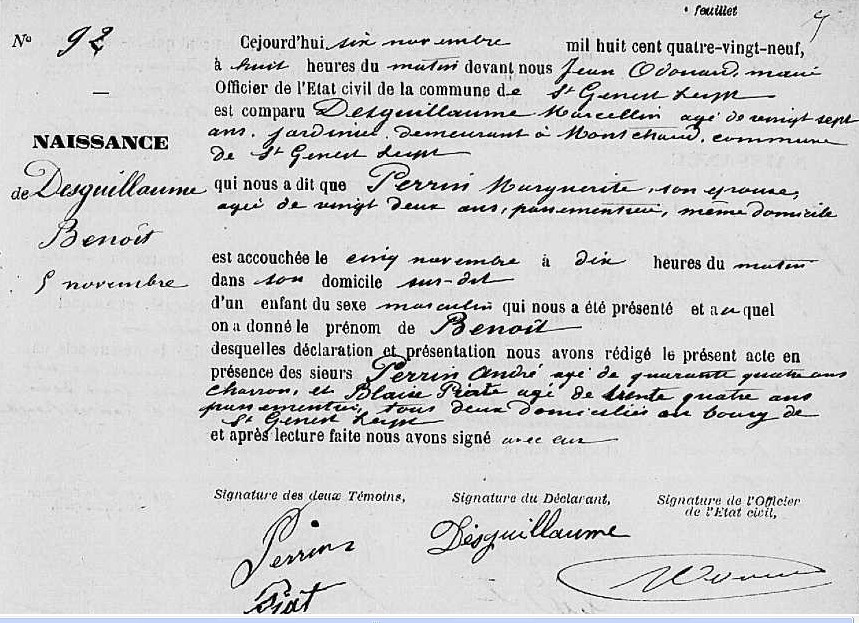 feuillet
5
N° 92
Cejourd'hui six novembre mil huit cent quatre-vingt-neuf,
à huit heures du matin devant nous Jean Odouard, maire
Officier de l'Etat civil de la commune de St Genest Lerpt
est comparu Desguillaume Marcellin agé de vingt sept
ans, jardinier demeurant à Montchaud, commune
de St Genest Lerpt
NAISSANCE
de Desguillaume
Benoît
5 novembre
qui nous a dit que Perrin Marguerite, son epouse,
agée de vingt deux ans, passementière, même domicile
est accouchée le cinq novembre à dix heures du matin
dans son domicile sus-dit
d'un enfant du sexe masculin qui nous a été présenté et auquel
on a donné le prénom de Benoît
desquelles déclaration et présentation nous avons rédigé le présent acte en
présence des sieurs Perrin André agé de quarante quatre ans
charron, et Blaise Piate agé de trente quatre ans
passementier, tous deux domiciliés au bourg de
St Genest Lerpt
et après lecture faite nous avons signé avec eux
Signature des deux Témoins, Signature du Déclarant, Signature de l'Officier
de l'Etat civil,
Perrin Désguillaume
Piat